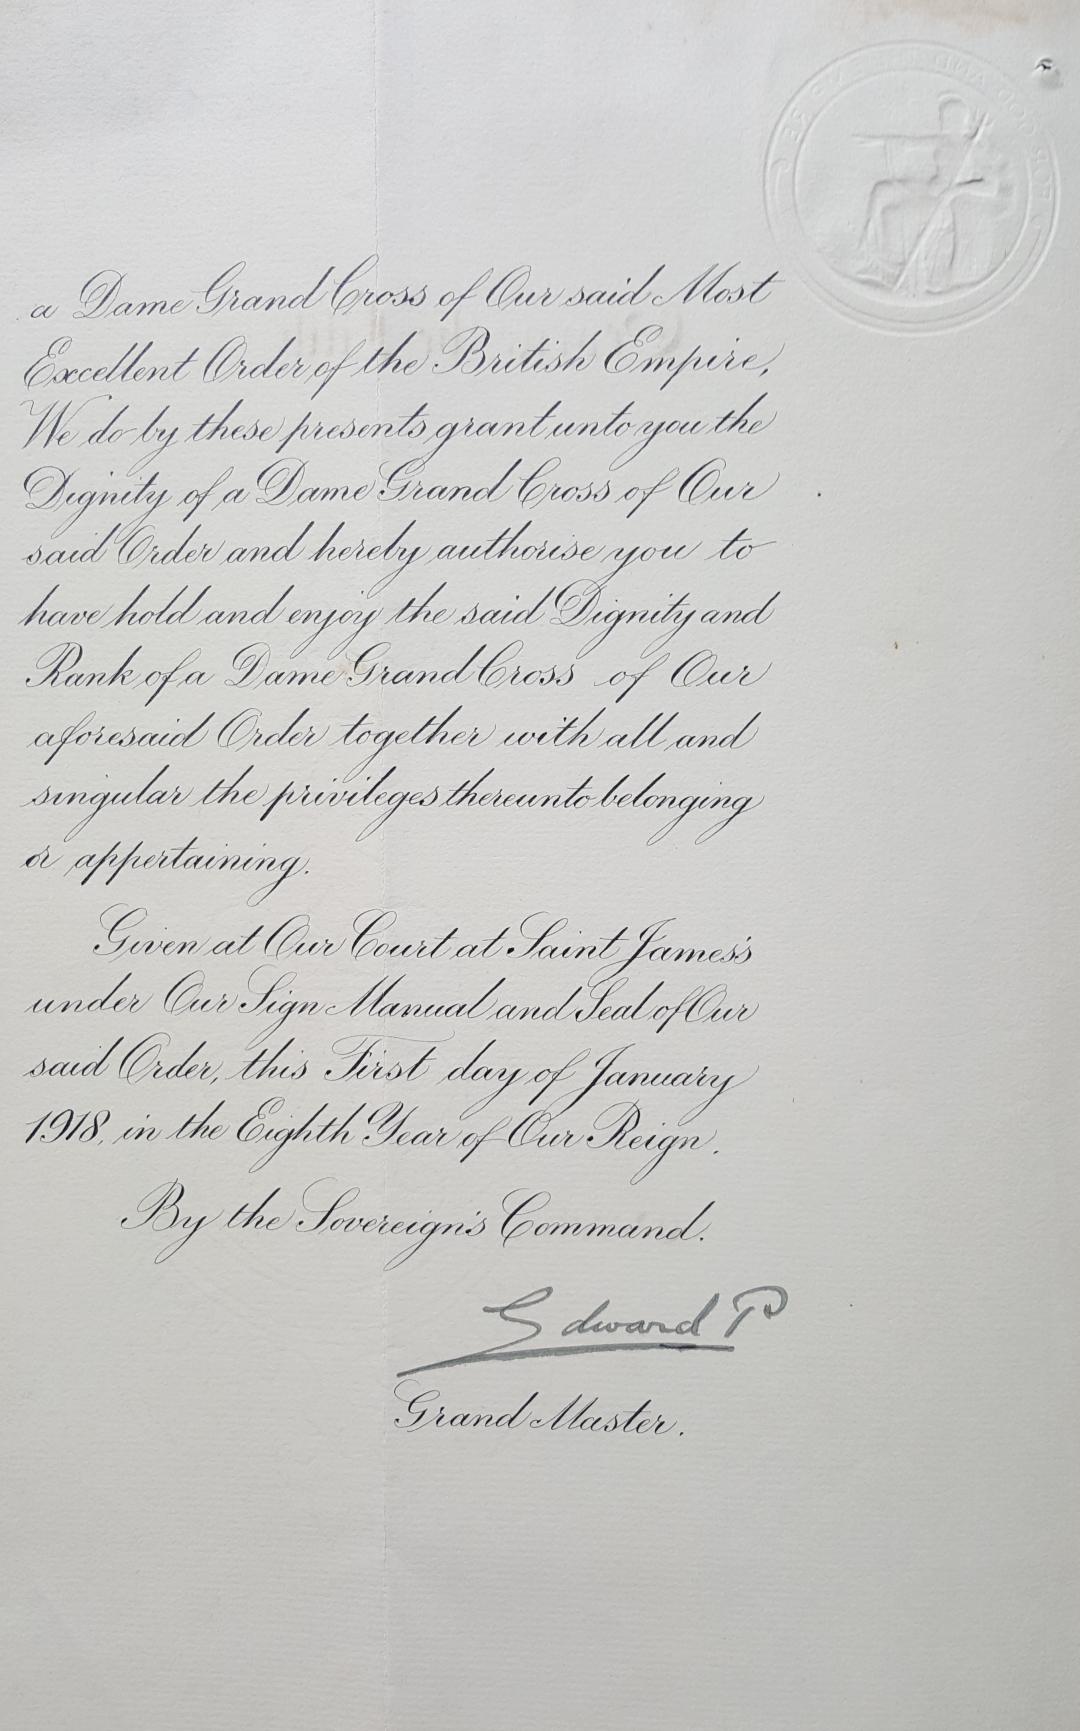 a Dame Grand Cross of Our said Most
Excellent Order of the British Empire,
We do by these presents grant unto you the
Dignity of a Dame Grand Cross of Our
said Order and hereby authorise you to
have hold and enjoy the said Dignity and
Rank of a Dame Grand Cross of Our
aforesaid Order together with all and
singular the privileges thereunto belonging
or appertaining.
Given at Our Court at Saint James's
under Our Sign Manual and Seal of Our
said Order, this First day of January
1918, in the Eighth Year of Our Reign.
By the Sovereign's Command.
Edward P
Grand Master.